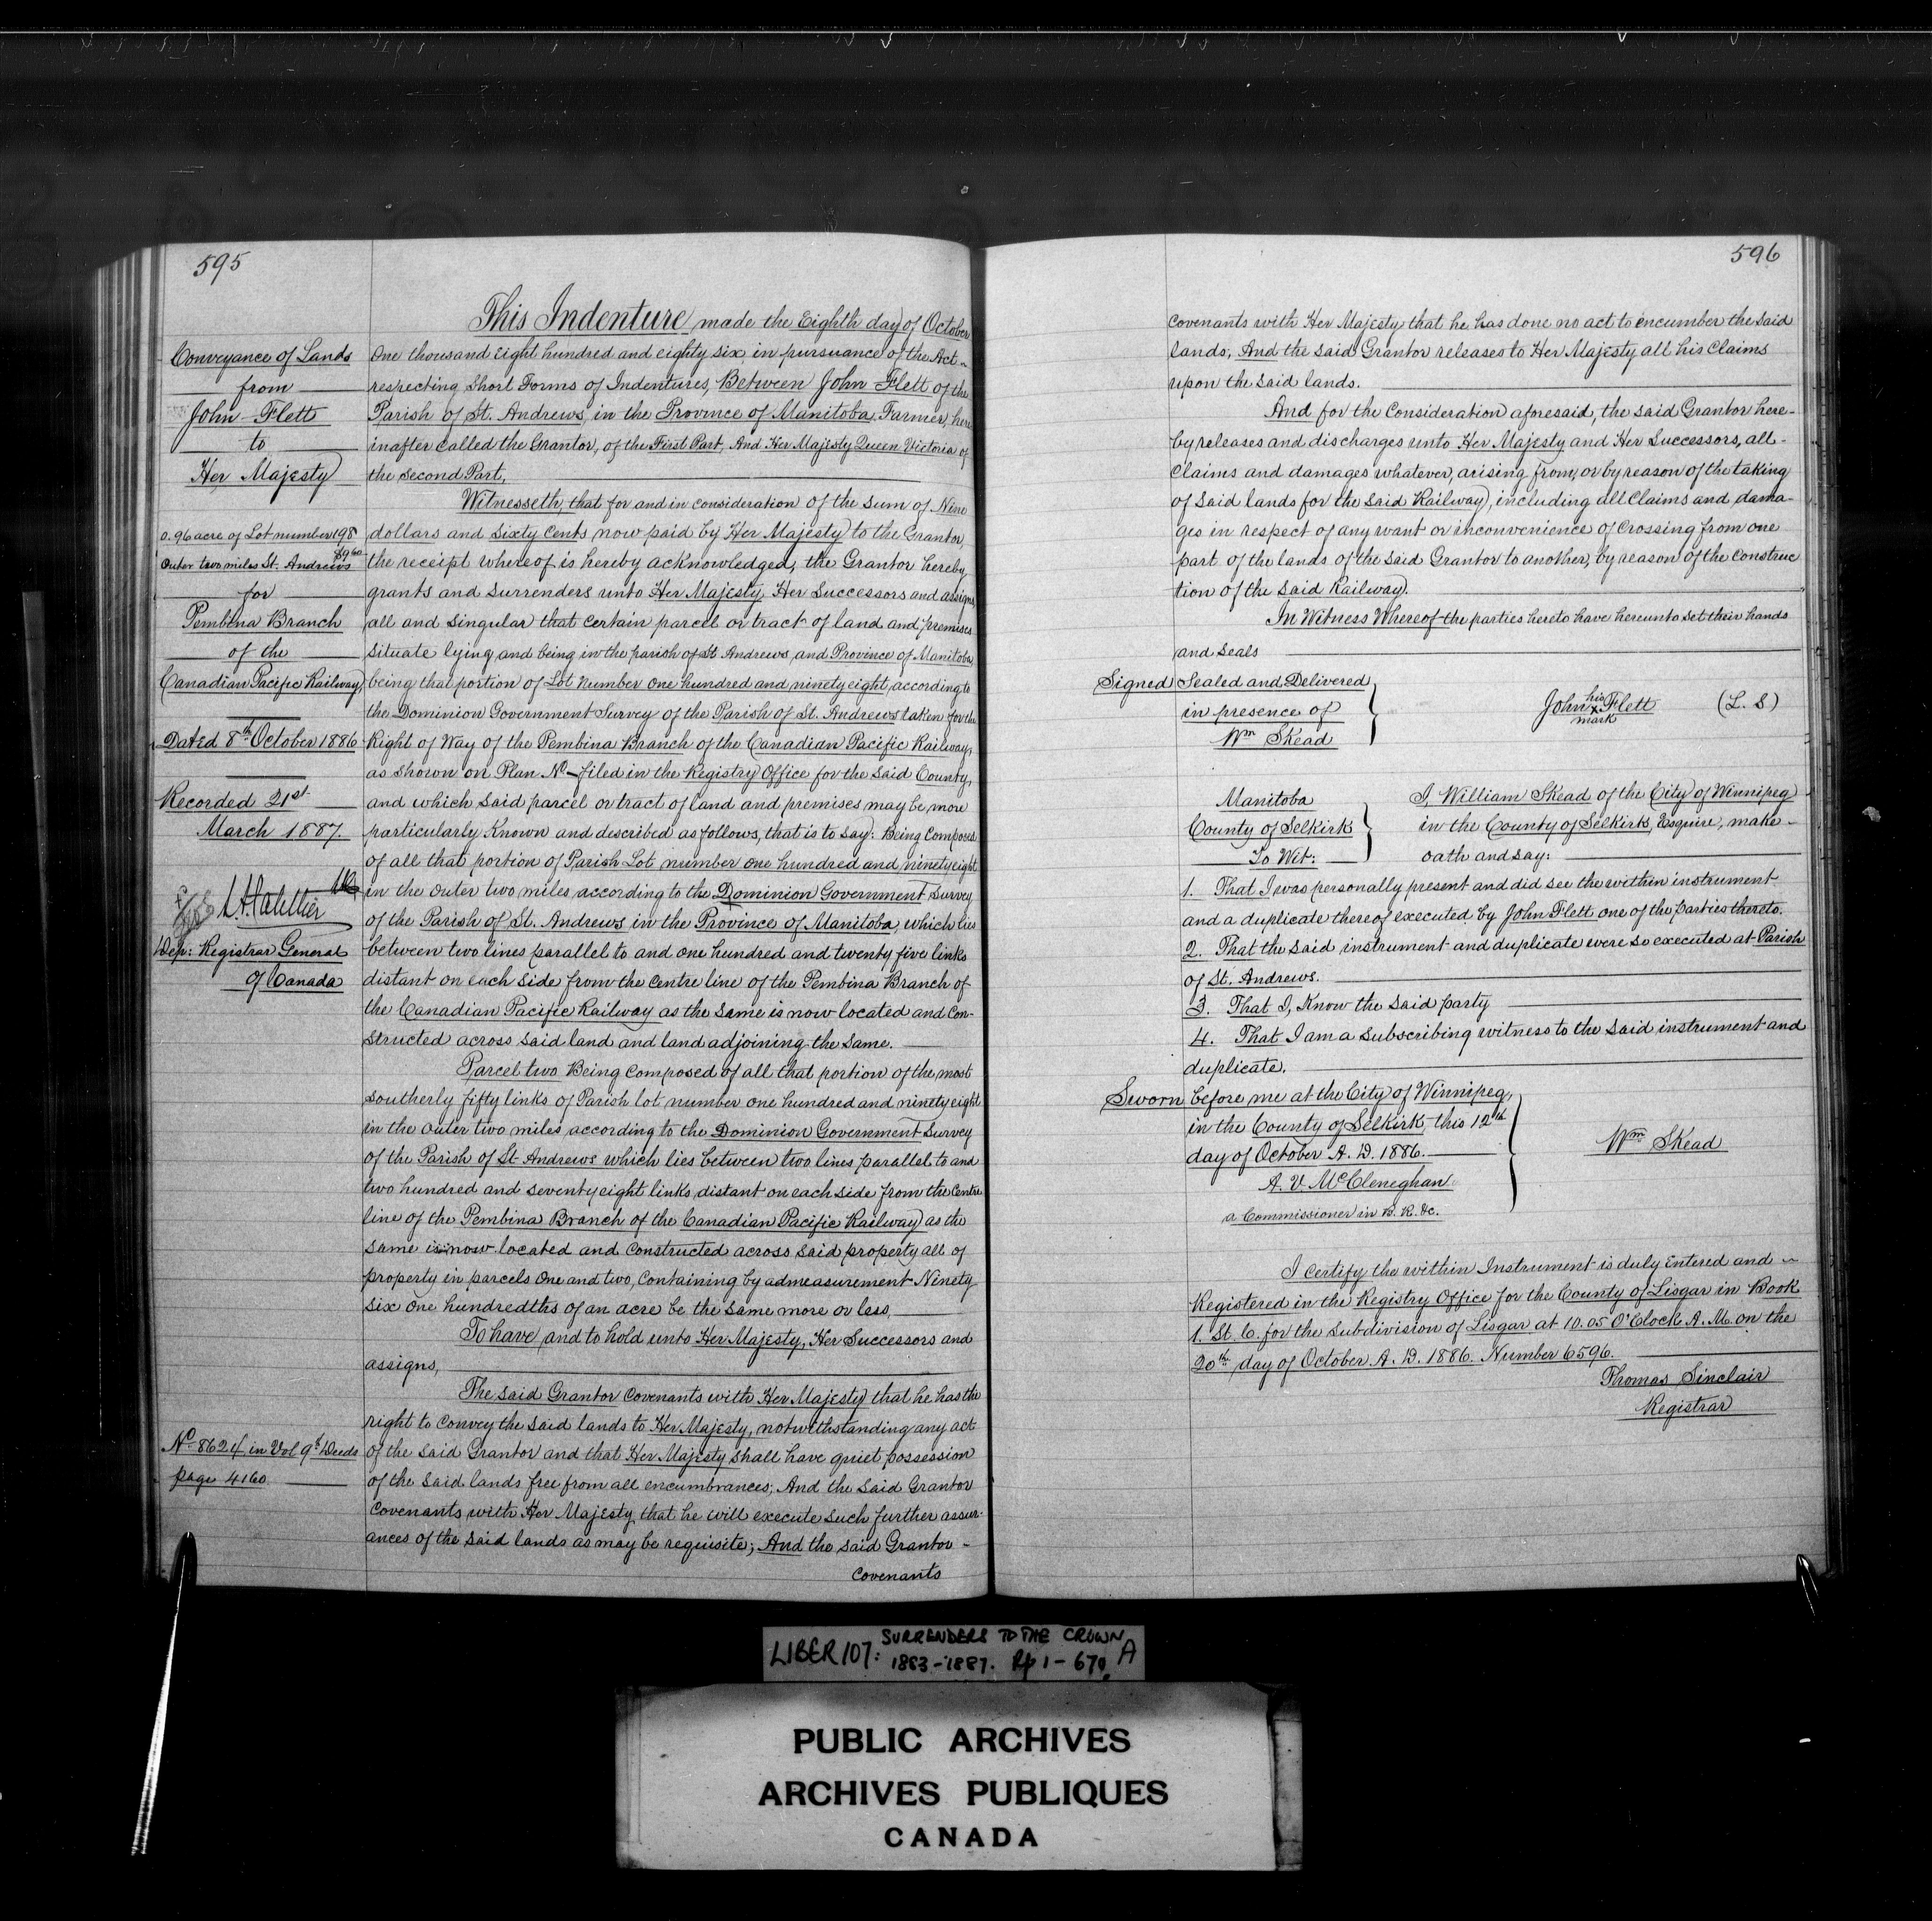 595
This Indenture made the Eighth day of October
Conveyance of Lands
from
John Flett
to
Her Majesty
0.96 acre of Lot number 198
$9.60
Outer two miles St. Andrews
for
Pembina Branch
of the
Canadian Pacific Railway,
Dated 8th October 1886
Recorded 21st
March 1887.
Dep: Registrar General
of Canada
No. 8624 in Vol 9 of Deeds
page 4160
One thousand Eight hundred and eighty six in pursuance of the Act
respecting Short Forms of Indentures, Between John Flett of the
Parish of St. Andrews, in the Province of Manitoba, Farmer, here
inafter called the Grantor, of the First Part, And Her Majesty Queen Victoria of
the Second Part,
Witnesseth, that for and in consideration of the sum of Nine
dollars and Sixty Cents now paid by Her Majesty to the Grantor,
the receipt whereof is hereby acknowledged, the Grantor hereby
grants and surrenders unto Her Majesty, Her Successors and assigns,
all and Singular that certain parcel or tract of land and premises
situate lying and being in the parish of St Andrews, and Province of Manitoba,
being that portion of Lot Number One hundred and ninety eight, according to
the Dominion Government Survey of the Parish of St. Andrews taken for the
Right of Way of the Pembina Branch of the Canadian Pacific Railway,
as shown on Plan No — filed in the Registry Office for the said County,
and which said parcel or tract of land and premises may be more
particularly Known and described as follows, that is to say: Being Composed
of all that portion of Parish Lot number one hundred and ninety eight
in the outer two miles, according to the Dominion Government Survey
of the Parish of St. Andrews in the Province of Manitoba, which lies
between two lines parallel to and one hundred and twenty five links
distant on each side from the centre line of the Pembina Branch of
the Canadian Pacific Railway as the same is now located and Con-
structed across said land and land adjoining the same.
Parcel two Being composed of all that portion of the most
southerly fifty links of Parish lot number one hundred and ninety eight
in the outer two miles according to the Dominion Government Survey
of the Parish of St Andrews which lies between two lines parallel to and
two hundred and seventy eight links distant on each side from the Centre
line of the Pembina Branch of the Canadian Pacific Railway as the
same is now located and constructed across said property all of
property in parcels one and two, containing by admeasurement Ninety
six one hundredths of an acre be the same more or less,
To have and to hold unto Her Majesty, Her Successors and
assigns,
The said Grantor Covenants with Her Majesty that he has the
right to convey the said lands to Her Majesty, notwithstanding any act
of the said Grantor and that Her Majesty shall have quiet possession
of the said lands free from all encumbrances; And the said Grantor
Covenants with Her Majesty that he will execute such further assur-
ances of the said lands as may be requisite; And the said Grantor -
Covenants
596
covenants with Her Majesty that he has done no act to encumber the said
lands; And the said Grantor releases to Her Majesty all his Claims
upon the said lands.
And for the Consideration aforesaid, the said Grantor here-
by releases and discharges unto Her Majesty and Her Successors, all -
Claims and damages whatever, arising from, or by reason of the taking
of said lands for the said Railway, including all Claims and dama-
ges in respect of any want or inconvenience of crossing from one
part of the lands of the said Grantor to another, by reason of the construc
tion of the said Railway.
In Witness Whereof the parties hereto have hereunto set their hands
and seals
Signed Sealed and Delivered
in presence of
Wm Skead
his
John x Flett (L.S)
mark
Manitoba
County of Selkirk
To Wit:
I, William Skead of the City of Winnipeg
in the County of Selkirk, Esquire, make -
oath and say:
1. That I was personally present and did see the within instrument
and a duplicate thereof executed by John Flett one of the parties thereto.
2. That the said instrument and duplicate were so executed at Parish
of St. Andrews.
3. That I, Know the said party
4. That I am a subscribing witness to the said instrument and
duplicate.
Sworn before me at the City of Winnipeg,
in the County of Selkirk, this 12th
day of October A.D. 1886.
A. V. McCleneghan
a Commissioner in B. R. &c.
Wm Skead
I certify the within Instrument is duly Entered and
Registered in the Registry Office for the County of Lisgar in Book
1. St. C. for the Subdivision of Lisgar at 10.05 O'Clock A.M. on the
20th day of October A.D. 1886. Number 6596.
Thomas Sinclair
Registrar
LIBER 107: SURRENDERS TO THE CROWN
1883-1887. pp 1-670 A
PUBLIC ARCHIVES
ARCHIVES PUBLIQUES
CANADA